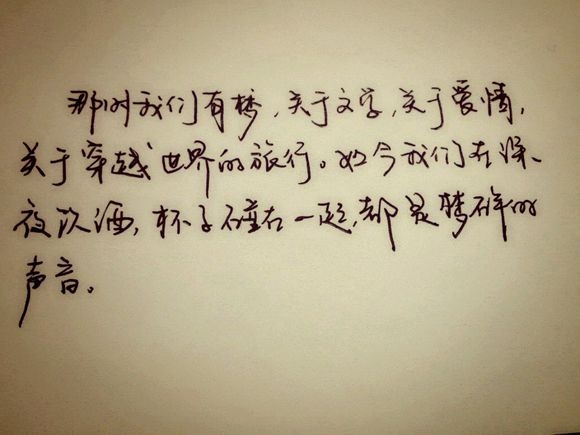 那时我们有梦,关于文学,关于爱情,
关于穿越世界的旅行。如今我们在深
夜饮酒,杯子碰在一起,都是梦碎的
声音。